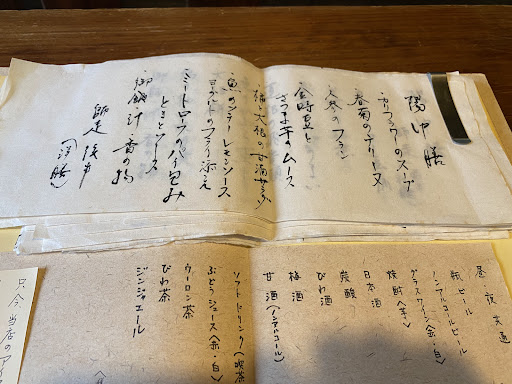 陽中膳
・カリフラワーのスープ
春菊のゼリーヌ
人参のフラン
・金時豆と
さつま芋のムース
・柿と大根の甘酒サラダ
・魚のソテーレモンソース
ヨーグルトのフラン添え
・ミートローフの今包み
トマトソース
・御飯 汁 香の物
師走 後半
昼・夜 共通
瓶ビール
ノンアルコールビール
グラスワイン(赤・白)
焼酎(芋)
日本酒
炭酸
びわ酒
梅酒
甘酒(ノンアルコール)
ソフトドリンク(喫茶
ぶどうジュース(赤・白)
ウーロン茶
びわ茶
ジンジャエール
只今当店のアイ